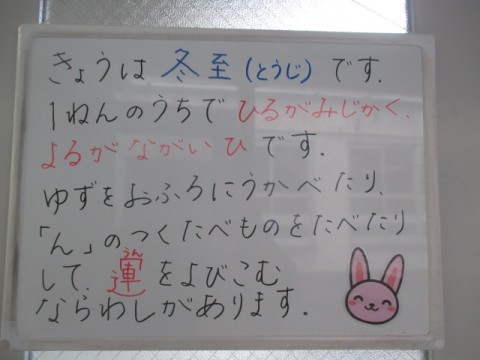 きょうは 冬至(とうじ)です.
1ねんのうちで ひるがみじかく、
よるが ながいひ です.
ゆずをおふろにうかべたり、
「ん」のつくたべものをたべたり
して、運をよびこむ
うん
ならわしがあります.